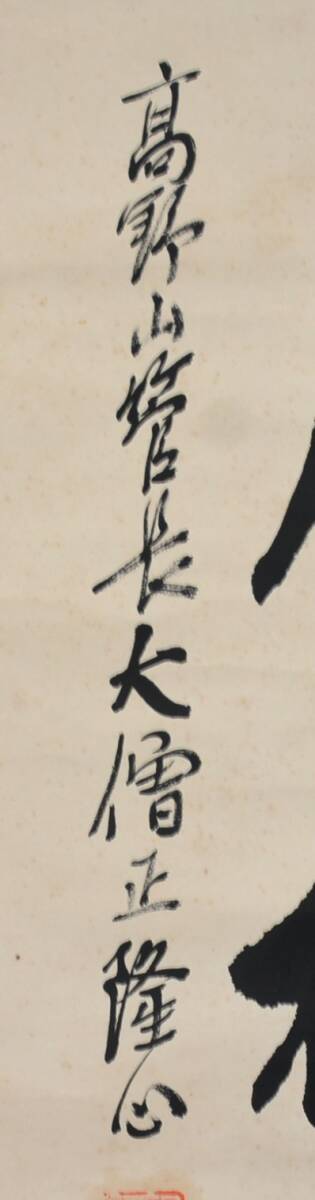 高野山管長大僧正隆心